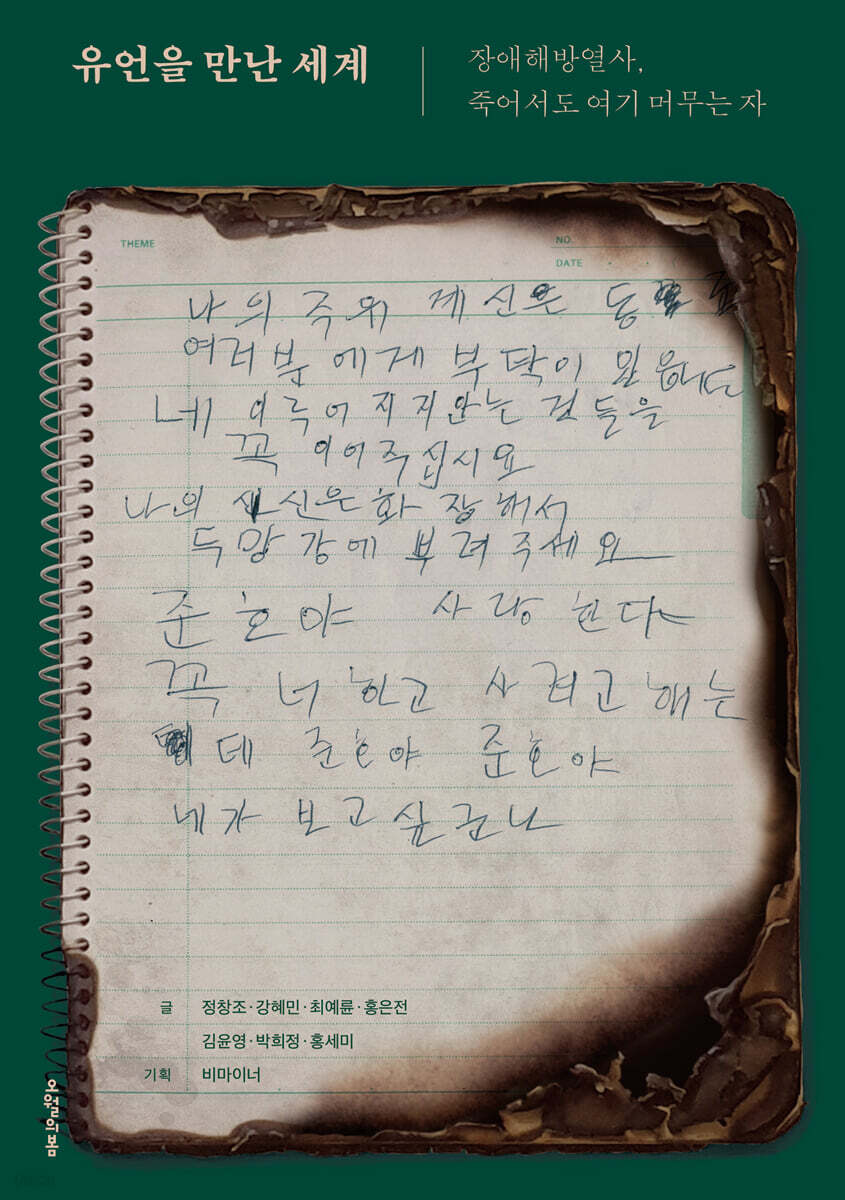 유언을 만난 세계
장애해방열사,
죽어서도 여기 머무는 자
THEME
NO.
DATE
나의 주위 계신은
여러분에게 부탁이
네 이루어지지안는 것들을
꼭 이어주십시요
나의 시신은화장해서
두망강에 부려주세요
준호야 사랑한다
꼭 너하고 사려고해는
데 준호야 준호야
네가 보고싶군나
글 정창조·강혜민·최예륜·홍은전
김윤영·박희정·홍세미
기획 비마이너
오월의봄